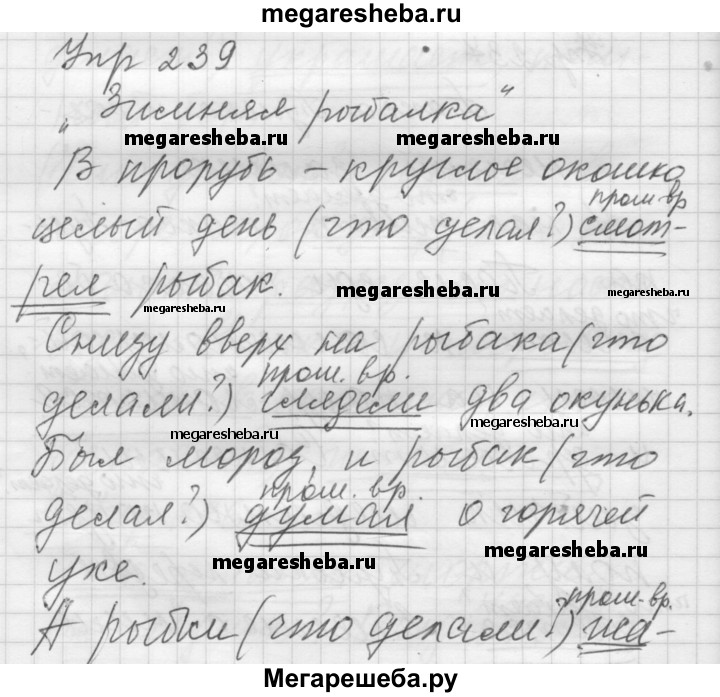 megaresheba.ru
Упр 239
„Зимняя рыбалка"
megaresheba.ru megaresheba.ru
В прорубь – круглое окошко
прош. вр.
целый день (что делал?) смот-
рел рыбак. megaresheba.ru
megaresheba.ru
Снизу вверх на рыбака (что
прош. вр. megaresheba.ru
делали?) глядели два окунька.
megaresheba.ru
Был мороз, и рыбак (что
прош. вр.
делал?) думал о горячей
megaresheba.ru megaresheba.ru
ухе.
прош. вр.
А рыбки (что делали?) ша-
Мегарешеба.ру